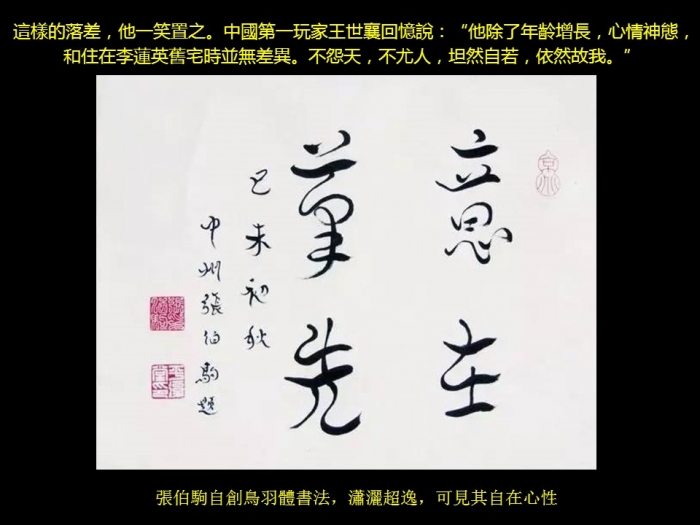 這樣的落差，他一笑置之。中國第一玩家王世襄回憶說：“他除了年齡增長，心情神態，
和住在李蓮英舊宅時並無差異。不怨天，不尤人，坦然自若，依然故我。”
意在
筆先
己未初秋
中州張伯駒題
張伯駒自創鳥羽體書法，瀟灑超逸，可見其自在心性